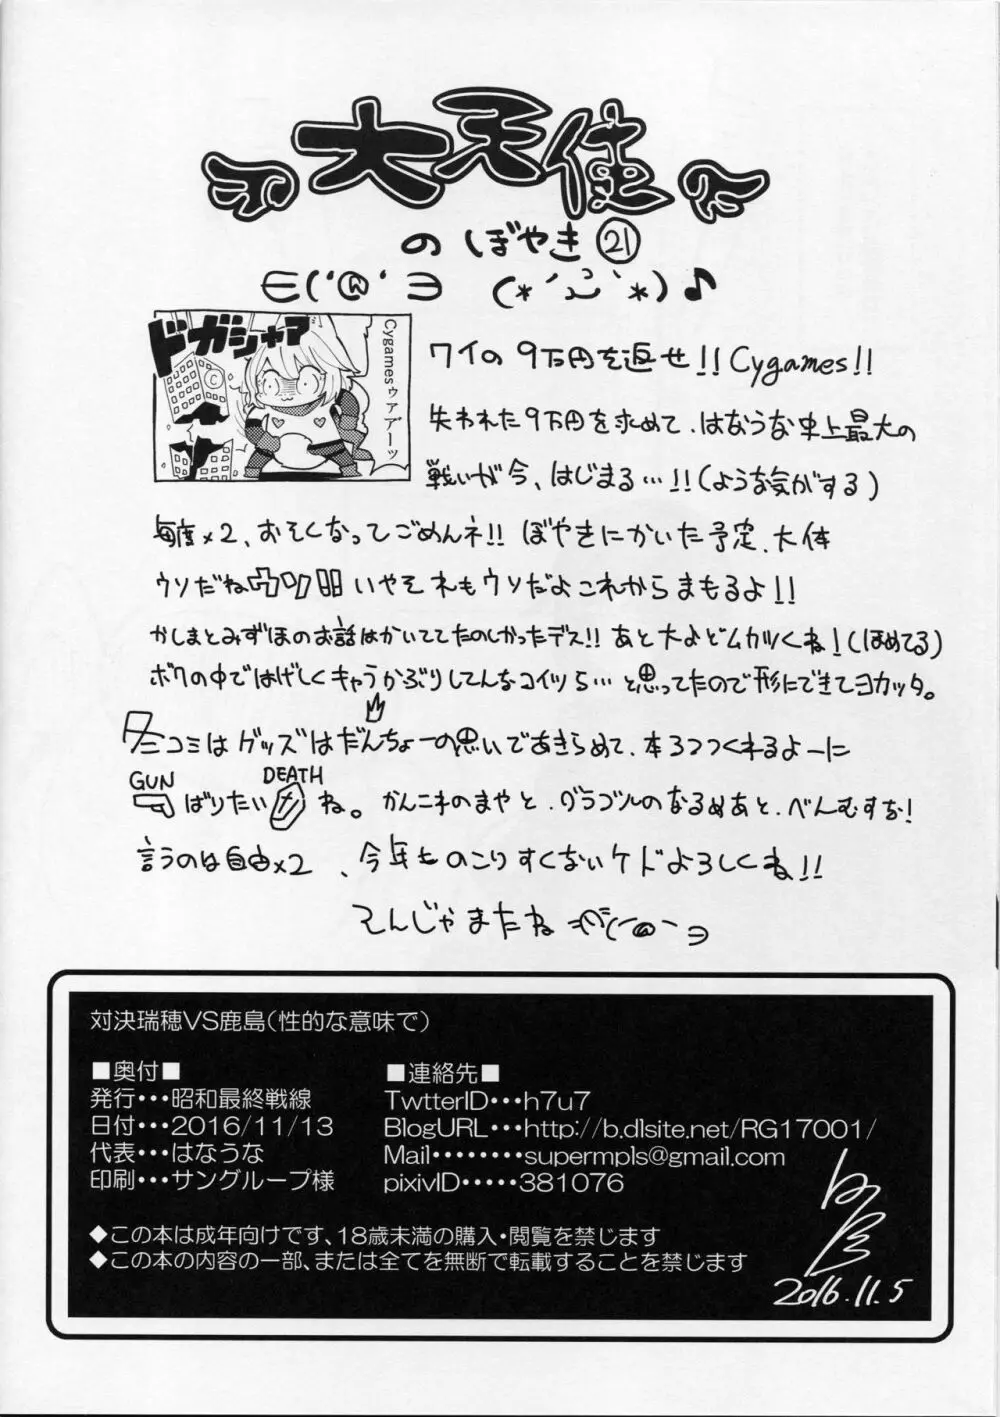 大天使
のぼやき㉑
∈('@'∋ (*´ω`*)♪
ドガシャア
Cygamesゥアアーッ
C
ワイの9万円を返せ!!Cygames!!
失われた9万円を求めて、はなうな史上最大の
戦いが今、はじまる…!!(ような気がする)
毎度×2、おそくなってごめんネ!!ぼやきにかいた予定、大体
ウソだねウソ!!いやそれもウソだよこれからまもるよ!!
かしまとみずほのお話はかいててたのしかったデス!!あと大よどムカつくね!(ほめてる)
ボクの中ではげしくキャラかぶりしてんなコイツら…と思ってたので形にできてヨカッタ。
冬コミはグッズはだんちょーの思いであきらめて、本3つつくれるよーに
GUN DEATH
ばりたいね。かんこれのまやと、グラブルのなるめあと、べんむすな!
言うのは自由×2、今年ものこりすくないケドよろしくね!!
そんじゃまたね
対決瑞穂VS鹿島(性的な意味で)
■奥付■
発行・・・昭和最終戦線
日付・・・2016/11/13
代表・・・はなうな
印刷・・・サングループ様
■連絡先■
TwtterID・・・h7u7
BlogURL・・・http://b.dlsite.net/RG17001/
Mail・・・・・・・・supermpls@gmail.com
pixivID・・・・・381076
◆この本は成年向けです、18歳未満の購入・閲覧を禁じます
◆この本の内容の一部、または全てを無断で転載することを禁じます
2016.11.5